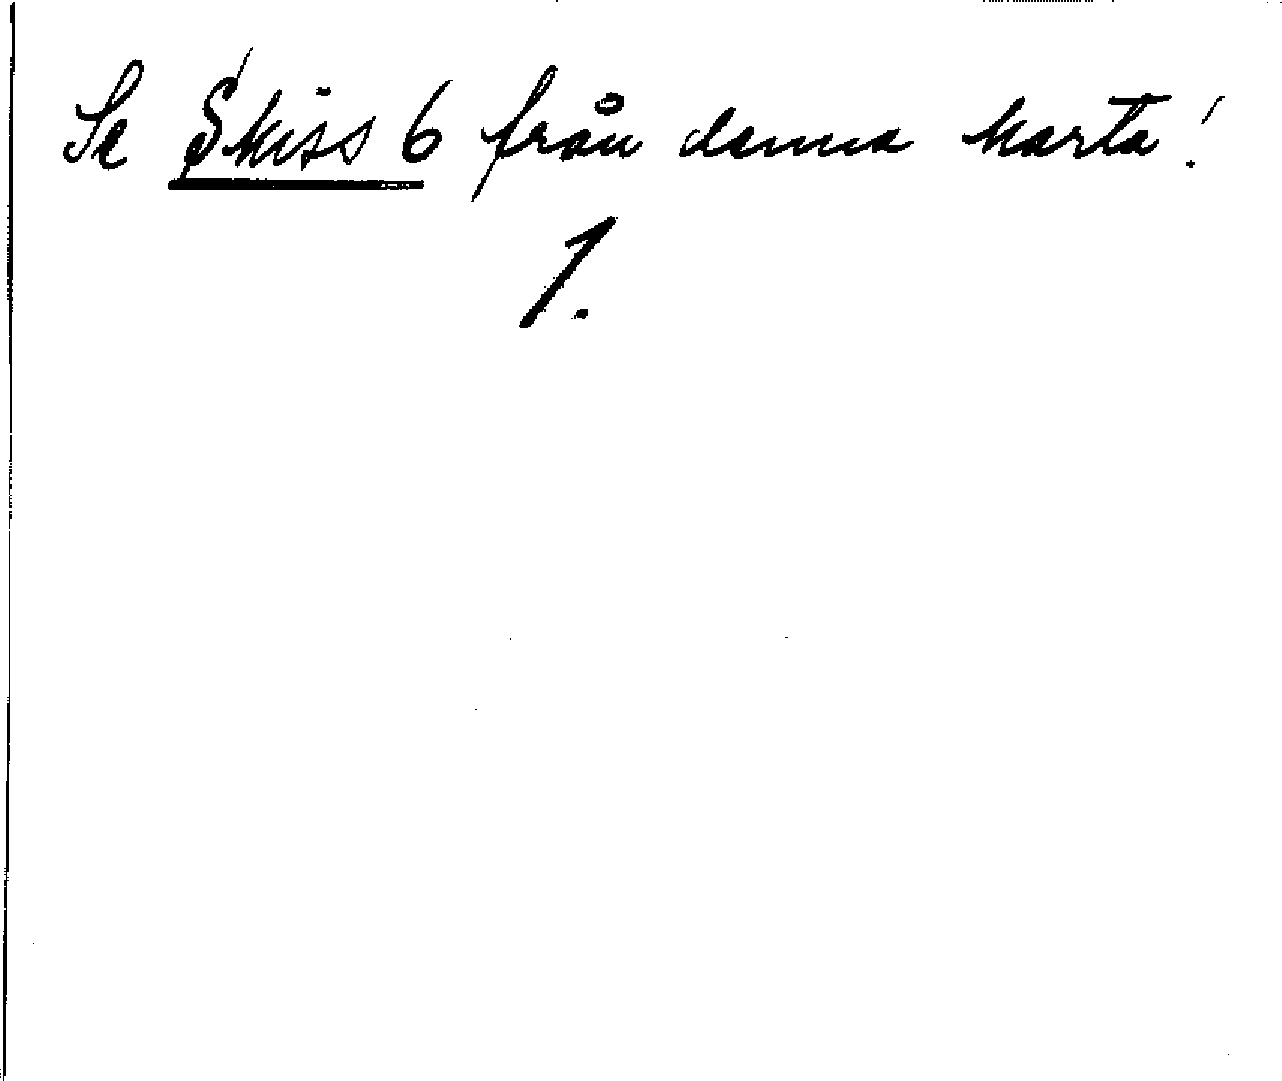 Se Skiss 6 från denna karta!
1.